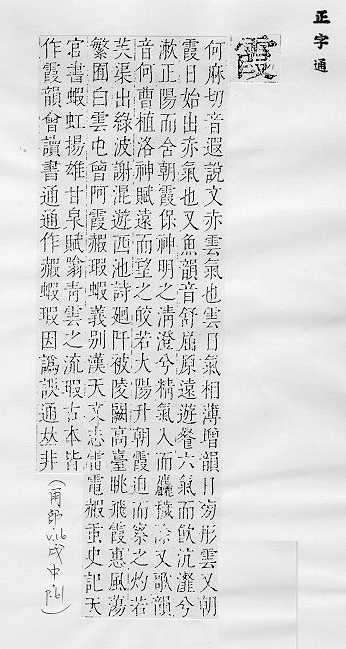 正字通
霞
何麻切音遐說文赤雲氣也雲日氣相薄增韻日旁彤雲又朝
霞日始出赤氣也又魚韻音舒屈原遠遊餐六氣而飮沆瀣兮
漱正陽而含朝霞保神明之淸澄兮精氣入而麤穢除又歌韻
音何曹植洛神賦遠而望之皎若太陽升朝霞迫而察之灼若
芙渠出綠波謝混遊西池詩廻阡被陵闕高臺眺飛霞惠風蕩
繁囿白雲屯曾阿霞赮瑕蝦義别漢天文志雷電赮虽史記天
官書蝦虹揚雄甘泉賦翁靑雲之流瑕古本皆
作霞韻會讀書通通作赮蝦瑕因譌誤通𠀤非
v.16 戌中 p.61